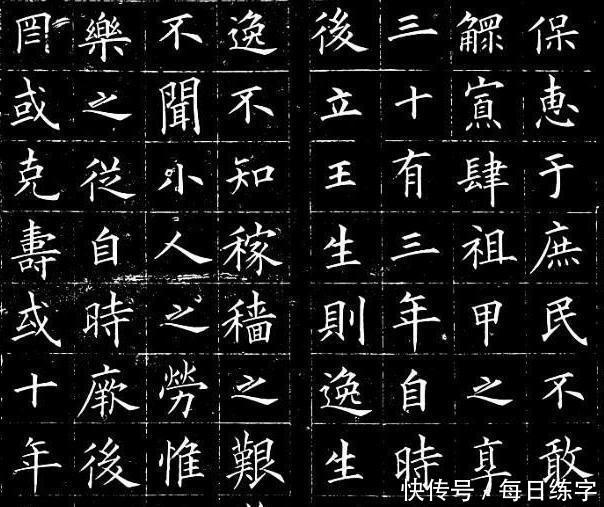 保惠于庶民不敢
鰥寡肆祖甲之享
三十有三年自時
後立王生則逸生
逸不知稼穡之艱
不聞小人之勞惟
樂之從自時厥後
罔或克壽或十年
快传号/每日练字